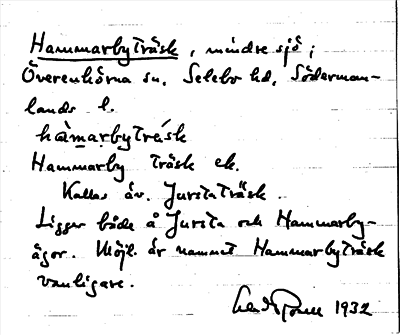 Hammarbyträsk, mindre sjö i
Överenhörna sn, Selebo hd, Söderman-
lands l.
hàmarbytrésk
Hammarby träsk ek.
Kallas äv. Jursta Träsk.
Ligger både å Jursta och Hammarby-
ägor. Möjl. är namnet Hammarbyträsk
vanligare.
1932